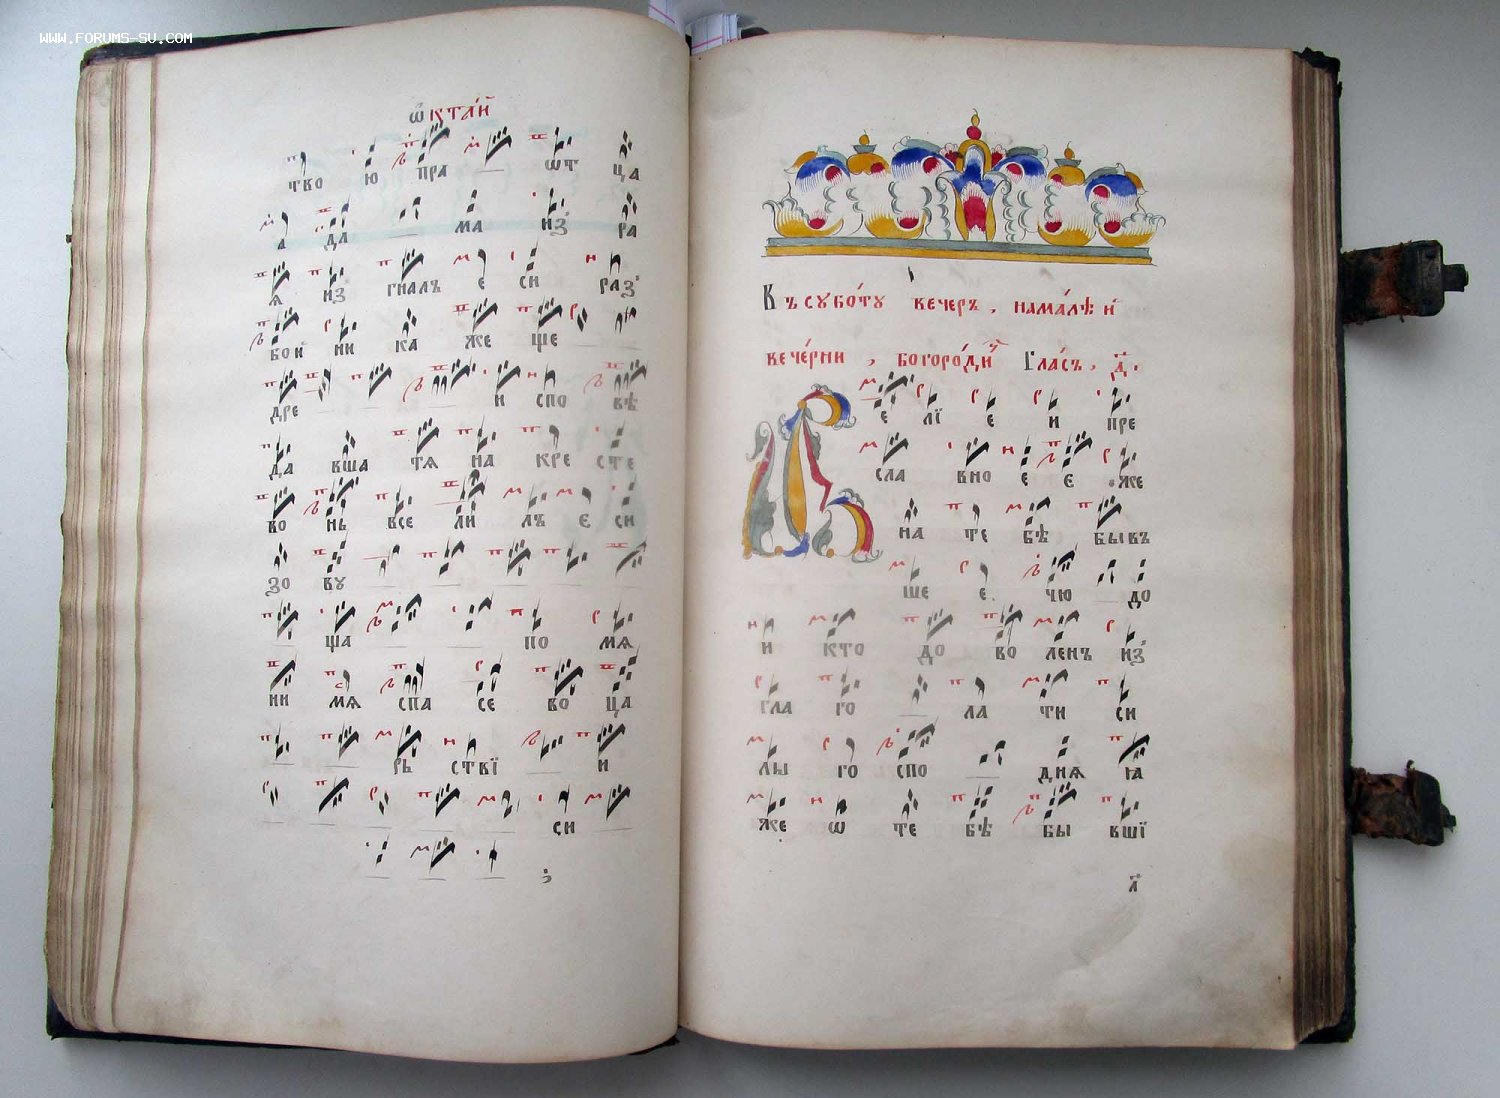 WWW.FORUMS-SU.COM
ѾКТАЙ
ТВО Ю ПРА ѾТ ЦА
А ДА МА ИЗ̾ РА
Я ИЗ ГНАЛЪ Е СИ РАЗ̾
БОЙ НИ КА ЖЕ ЩЕ
ДРЕ И СПО ВѢ
ДА ВША ТЯ НА КРЕ СТЕ
ВО НЬ ВСЕ ЛИ ЛЪ Є СИ
ЗО ВУ
ЩА ПО МѦ
НИ МѦ СПА СЕ ВО ЦА
РЬ СТВЇ И
СИ
Въ суббо́ту вечеръ, нама́лѣй
вече́рни, богоро́ди Гла́съ, д҃.
Е ЛЇ Е И ПРЕ
СЛА ВНО Е Є ЖЕ
НА ТЕ БѢ БЫВЪ
ШЕ Е ЧЮ ДО
И КТО ДО ВО ЛЕНЪ ИЗ̾
ГЛА ГО ЛА ТИ СИ
ЛЫ ГО СПО ДНѦ ꙖА
ЖЕ Ѡ ТЕ БѢ БЫ ВШЇ